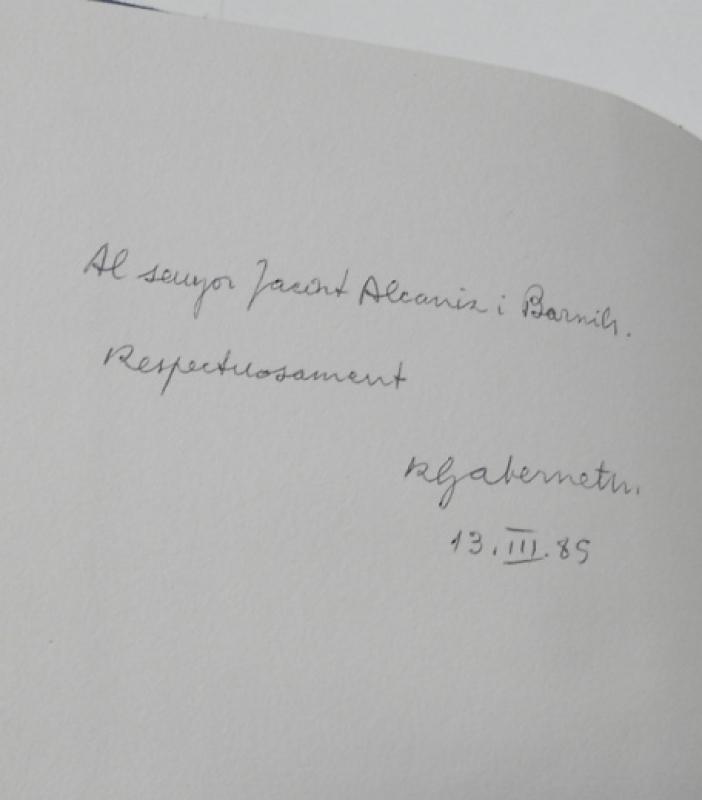 Al senyor Jacint Alcaniz i Barnils.
Respectuosament
RGabernet
13.III.85